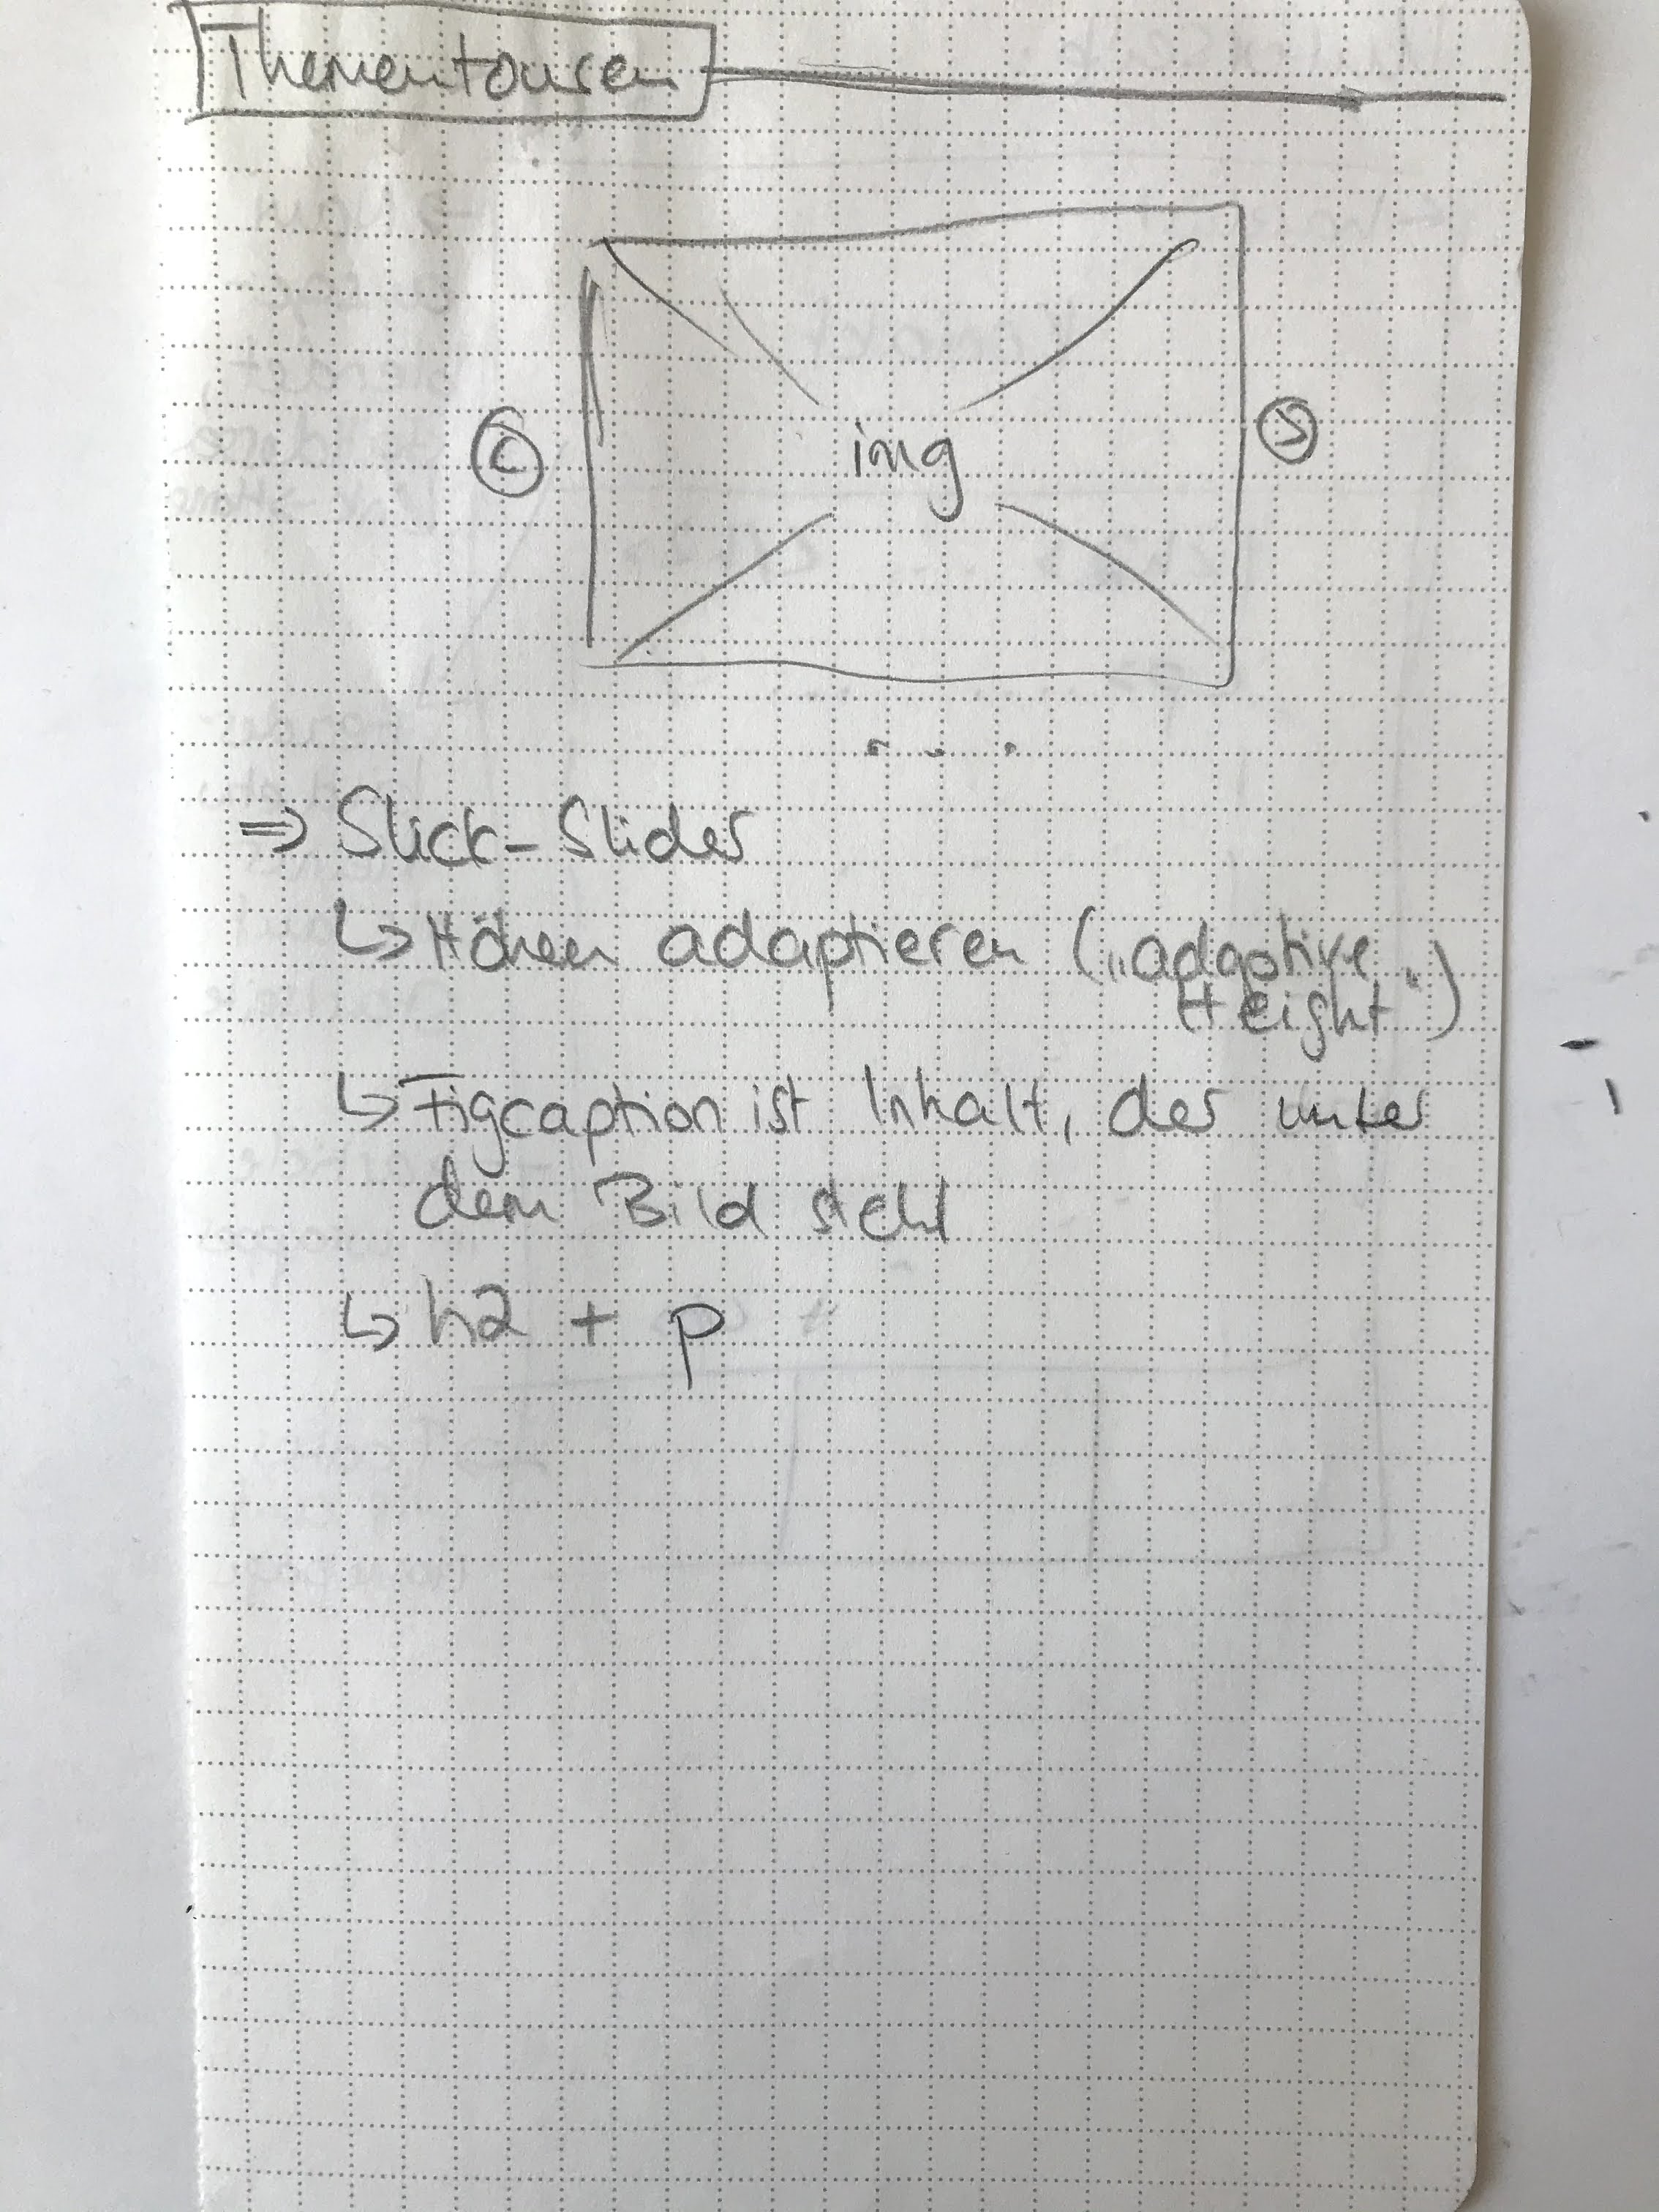 Thementouren
img
⇒ Slick-Slider
↳ Höhen adaptieren („adaptive
Height")
↳ Figcaption ist Inhalt, der unter
dem Bild steht
↳ h2 + p